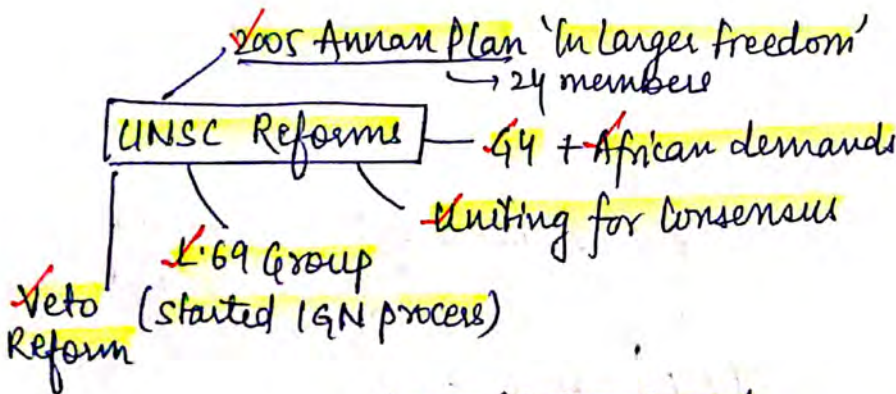 2005 Annan Plan 'In larger freedom'
→ 24 members
UNSC Reforms
G4 + African demands
Uniting for Consensus
L.69 Group
(started IGN process)
Veto
Reform